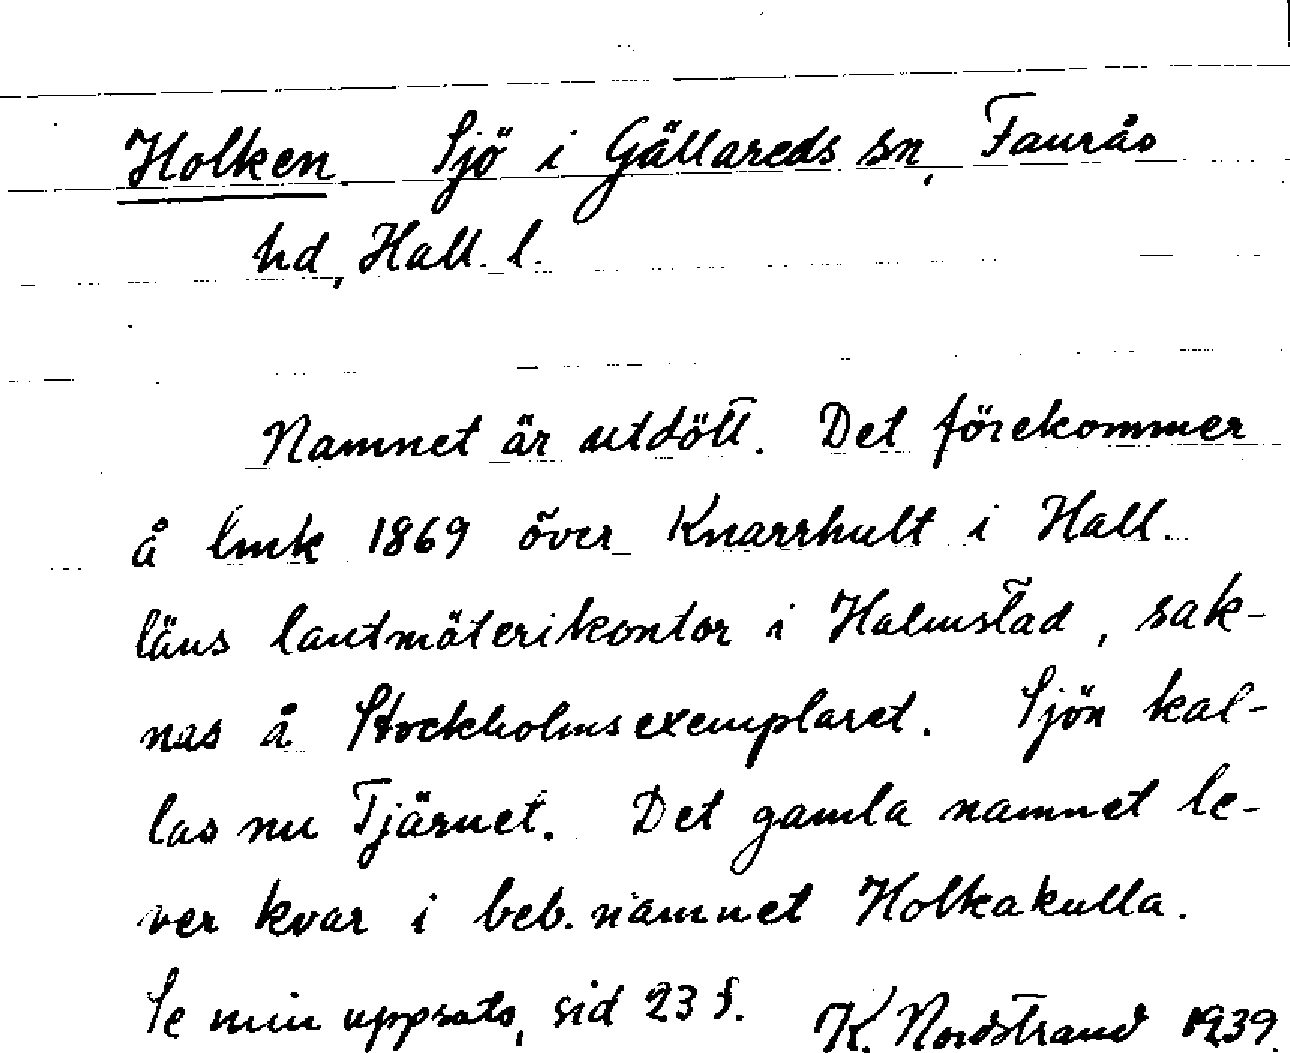 Holken. Sjö i Gällareds sn, Faurås
hd, Hall. l.
Namnet är utdött. Det förekommer
å lmk 1869 över Knarrhult i Hall.
läns lantmäterikontor i Halmstad, sak-
nas å Stockholmsexemplaret. Sjön kal-
las nu Tjärnet. Det gamla namnet le-
ver kvar i beb. namnet Holkakulla.
Se min uppsats, sid 23 f. K. Nordstrand 1939.